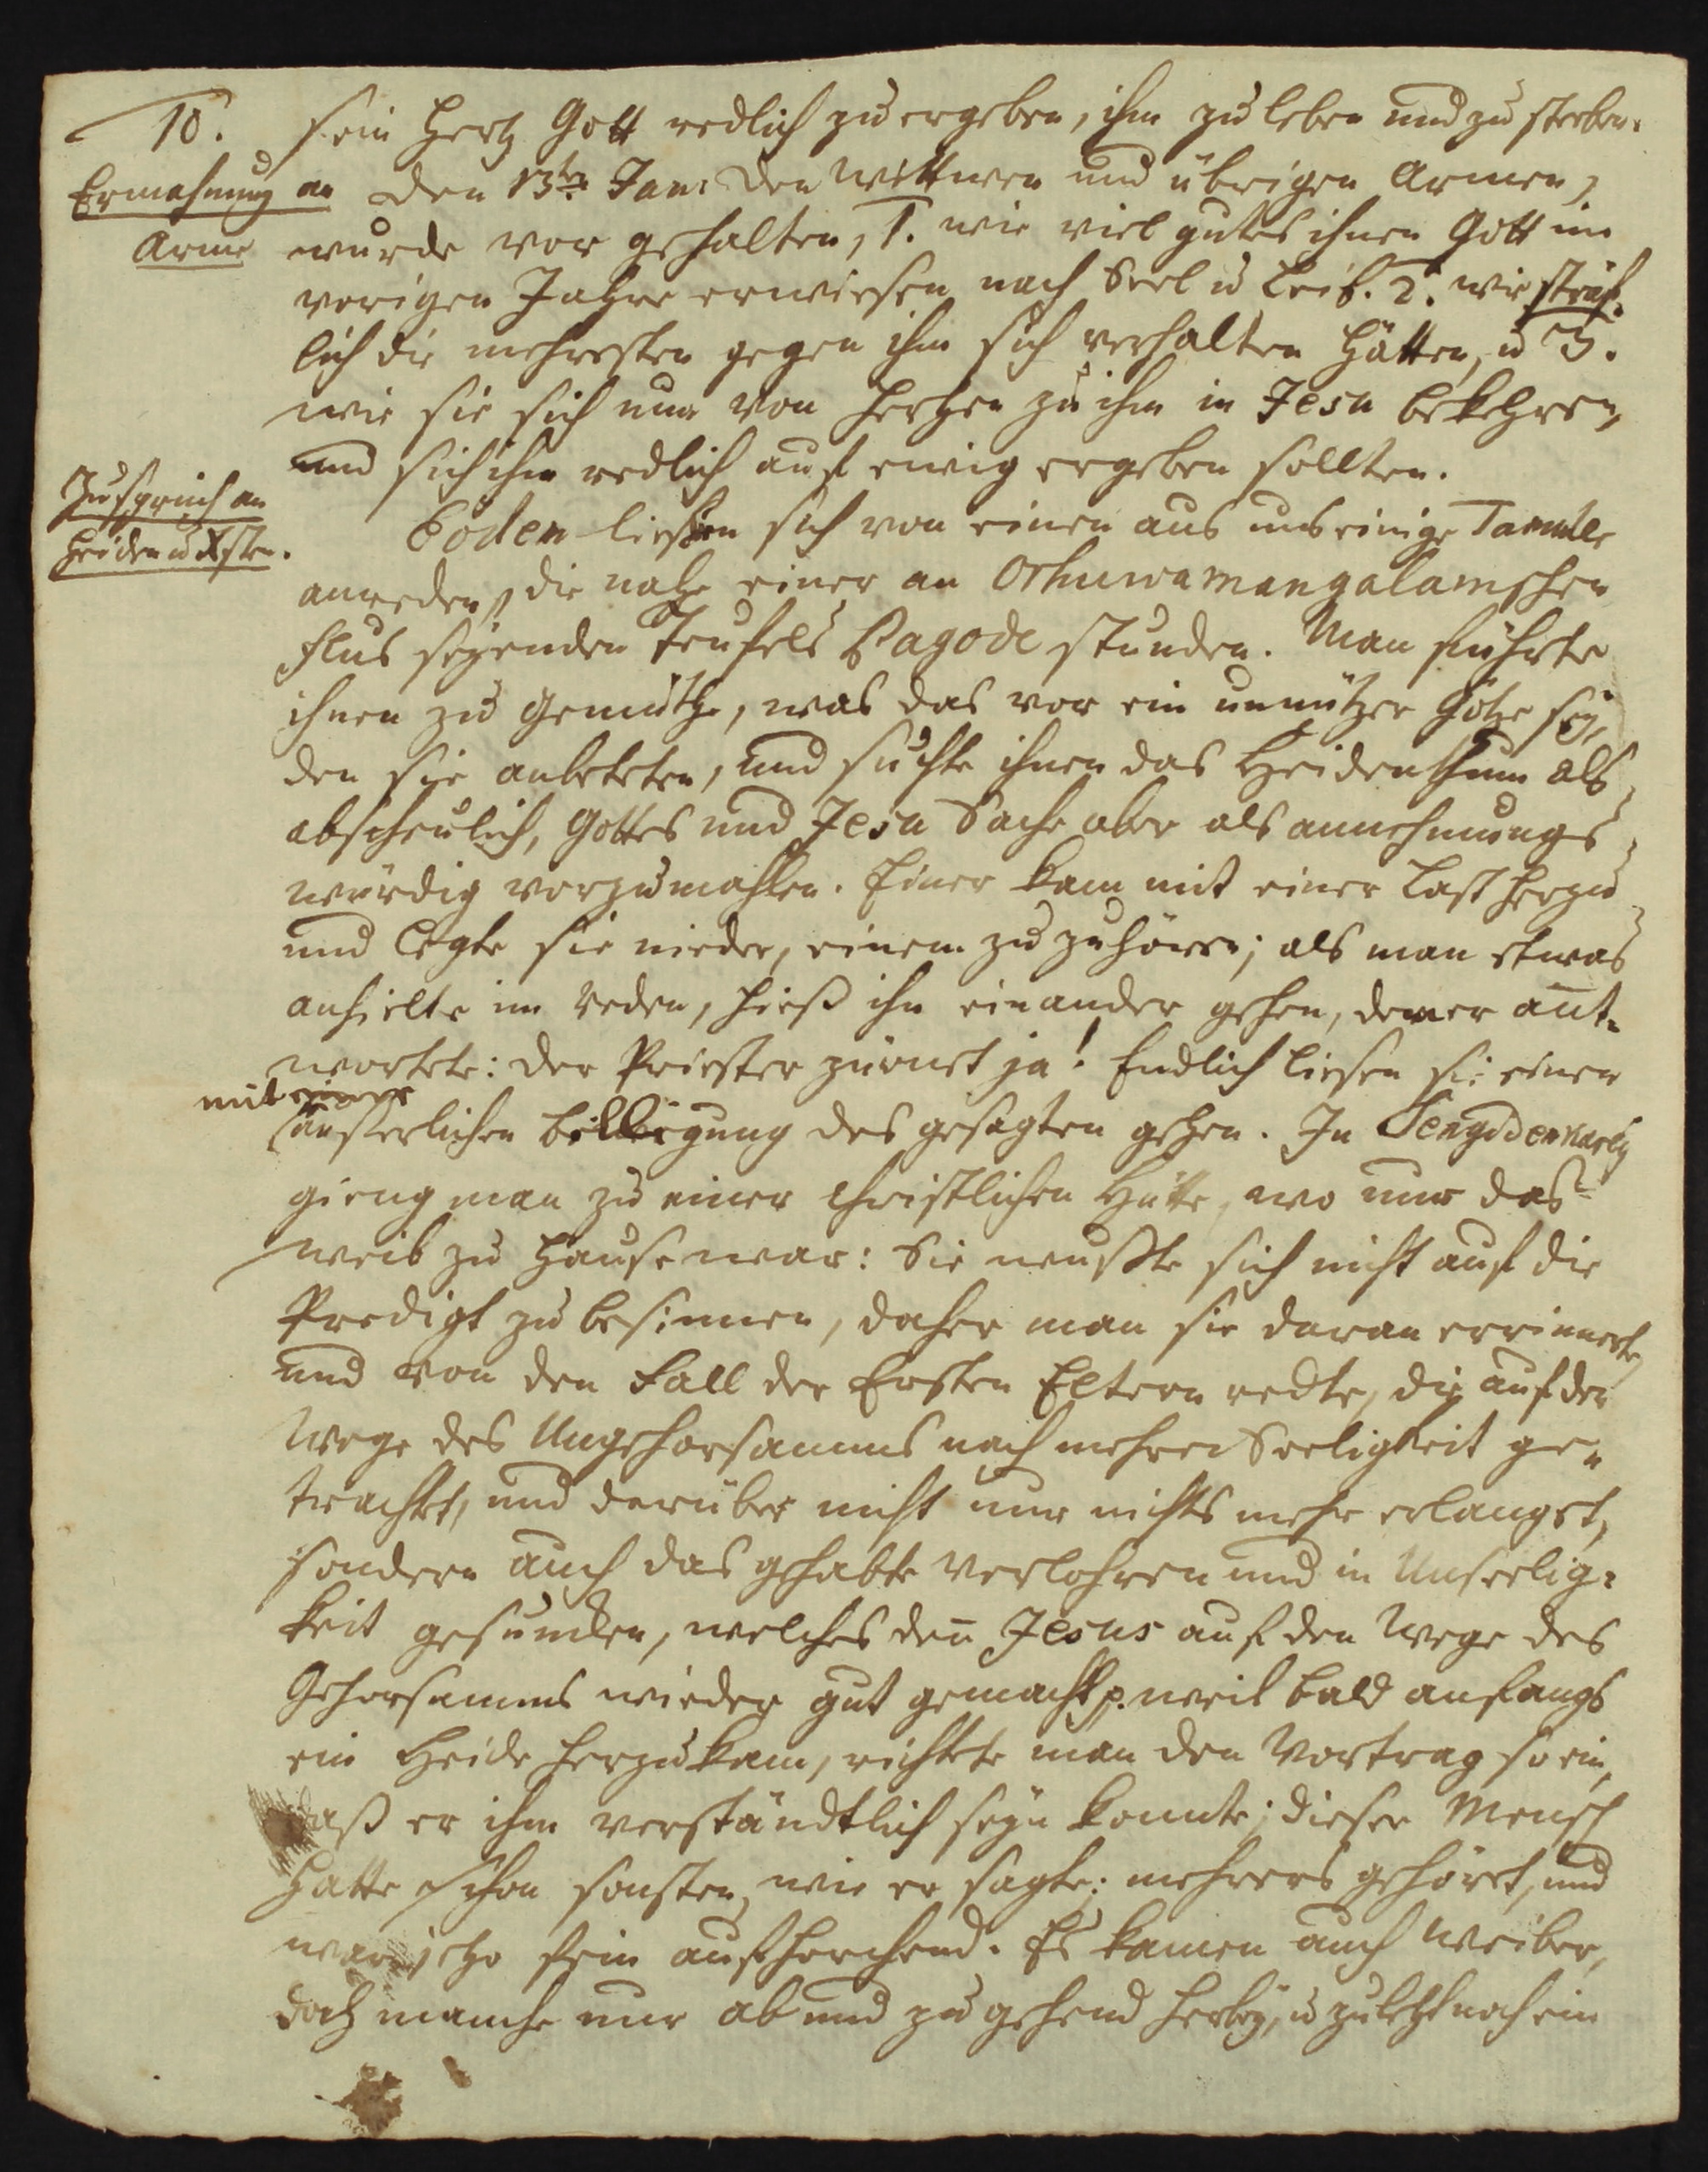 10.
sein Hertz Gott redlich zu ergeben, ihm zu leben und zu sterben.
Ermahnung an
Arme
Den 13ten Jan: den Wittwen und übrigen Armen,
wurde vor gehalten, 1. wie viel gutes ihnen Gott im
vorigen Jahre erwiesen nach Seel u Leib. 2. wie sträf-
lich die mehresten gegen ihm sich verhalten hätten, u 3.
wie sie sich nun von Hertzen zu ihm in Jesu bekehren,
und sich ihm redlich auf ewig ergeben sollten.
Zuspruch an
Heiden u Xsten.
Eodem liessen sich von einen aus uns einige Tamuler
anreden, die nahe einer an Orhuwamangalamschen
Flus seyenden Teufels Pagode stunden. Man führte
ihnen zu Gemüthe, was das vor ein unnützer Götze sey,
den sie anbeteten, und suchte ihnen das Heidenthum als
abscheulich, Gottes und Jesu Sache aber als annehmungs-
würdig vorzumahlen. Einer kam mit einer Last herzu
und legte sie nieder, einem zu zuhören; als man etwas
anhielte im reden, hieß ihn ein ander gehen, dem er ant-
wortete: der Priester zürnet ja! Endlich liesen sie einen
mit einer
äusserlichen billigung des gesagten gehen. In Sengidenkarey
gieng man zu einer Christlichen Hütte, wo nur das
Weib zu Hause war: Sie wußte sich nicht auf die
Predigt zu besinnen, daher man sie daran errinnerte,
und von den Fall der Ersten Eltern redte, die auf den
Wege des Ungehorsamms nach mehrer Seeligkeit ge-
trachtet, und darüber nicht nur nichts mehr erlanget,
sondern auch das gehabte verlohren und in Unseelig-
keit gesuncken, welches den̅ Jesus auf den Wege des
Gehorsamms wieder gut gemacht p. weil bald anfangs
ein Heide herzukam, richtete man den Vortrag so ein,
daß er ihm verständtlich seyn konnte; dieser Mensch
hatte schon sonsten, wie er sagte: mehrers gehöret, und
war jetzo fein aufhorchend. Es kamen auch Weiber,
doch manche nur ab und zu gehend herbey, u zuletzt noch ein